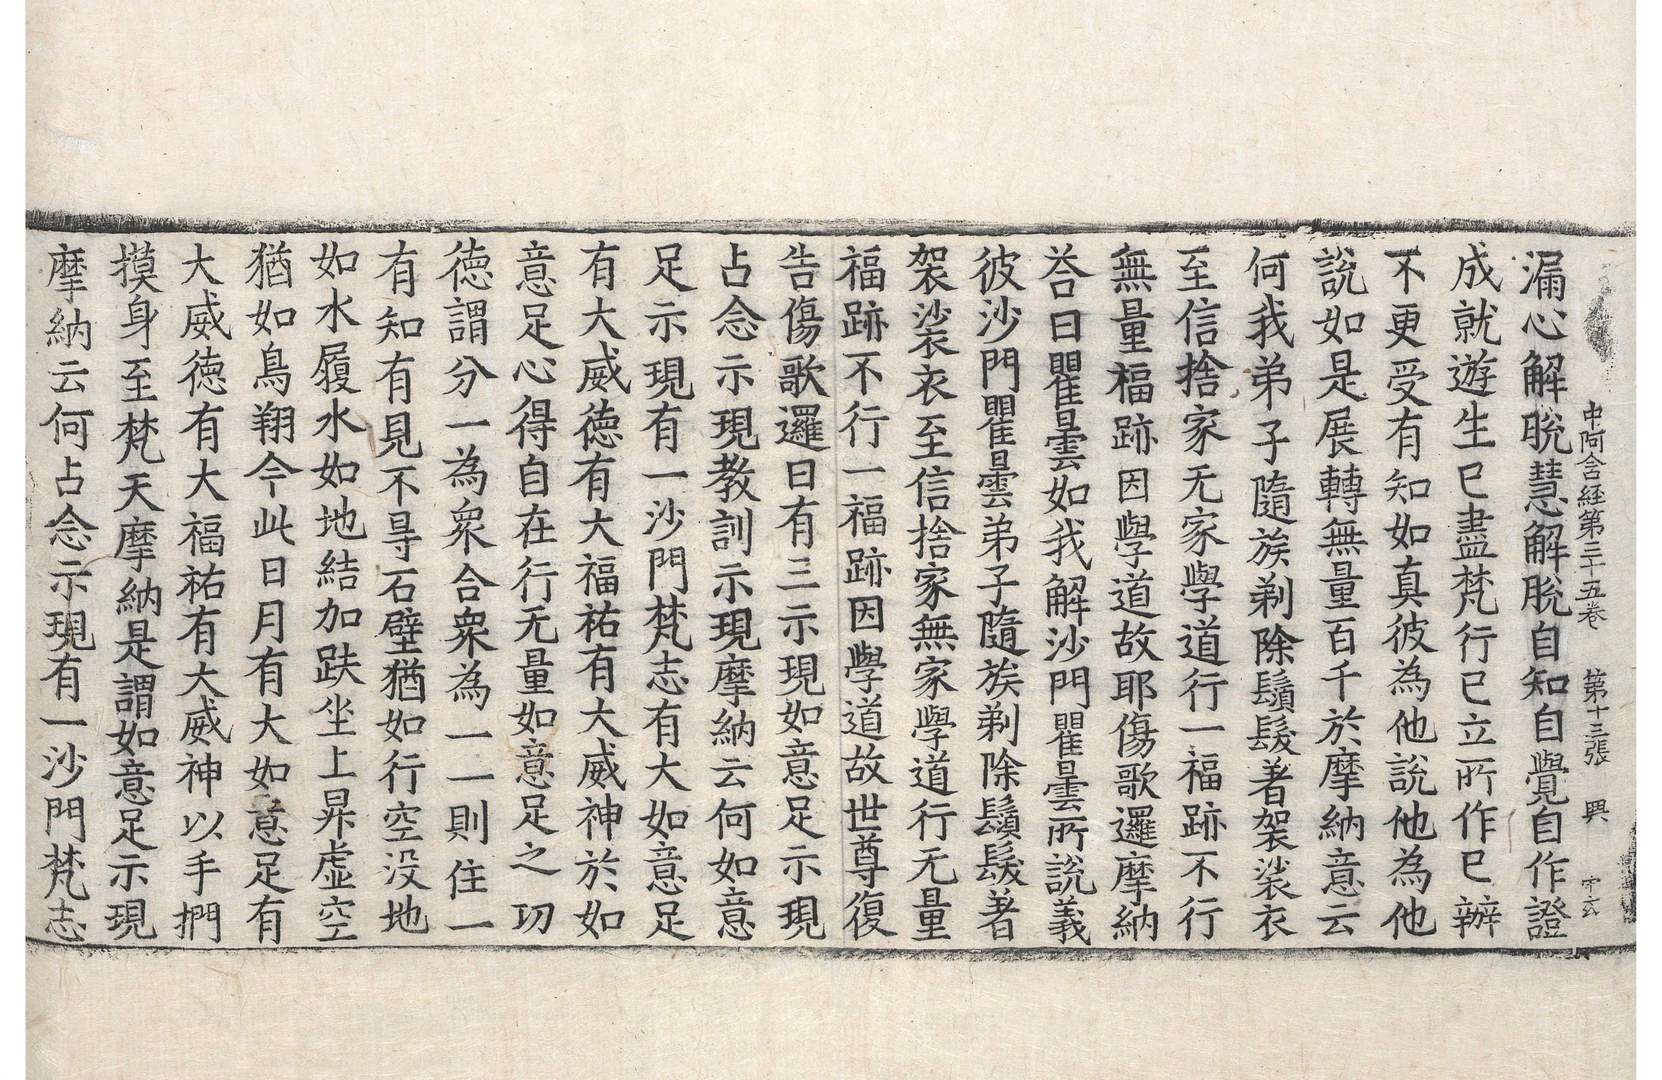 中阿含經第三十五卷 第十三張 興
漏心解脫慧解脫自知自覺自作證
成就遊生已盡梵行已立所作已辦
不更受有知如真彼為他說他為他
說如是展轉無量百千於摩納意云
何我弟子隨族剃除鬚髮著袈裟衣
至信捨家无家學道行一福跡不行
無量福跡因學道故耶傷歌邏摩納
荅曰瞿曇如我解沙門瞿曇所說義
彼沙門瞿曇弟子隨族剃除鬚髮著
袈裟衣至信捨家無家學道行无量
福跡不行一福跡因學道故世尊復
告傷歌邏曰有三示現如意足示現
占念示現教訓示現摩納云何如意
足示現有一沙門梵志有大如意足
有大威德有大福祐有大威神於如
意足心得自在行无量如意足之功
德謂分一為衆合衆為一一則住一
有知有見不㝵石壁猶如行空沒地
如水履水如地結加趺坐上昇虛空
猶如鳥翔今此日月有大如意足有
大威德有大福祐有大威神以手捫
摸身至梵天摩納是謂如意足示現
摩納云何占念示現有一沙門梵志